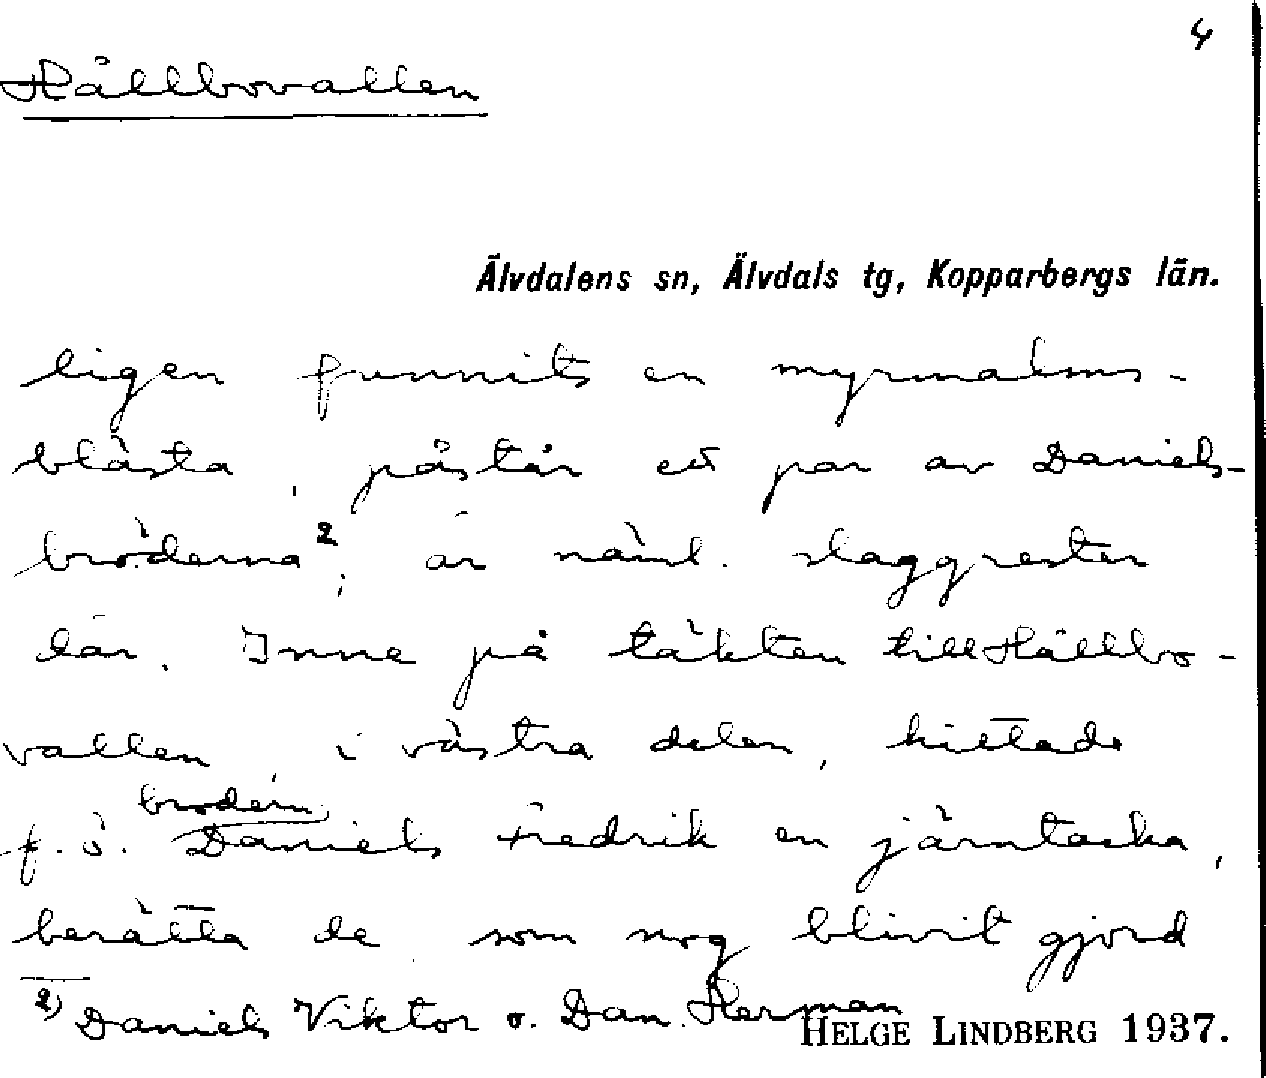 4
Hållbovallen
Älvdalens sn, Älvdals tg, Kopparbergs län.
ligen funnits en myrmalms-
blästa, påstår ett par av Daniels-
bröderna2; är näml. slaggrester
där. Inne på täkten till Hållbo-
vallen, i västra delen, hittade
brodern
f. ö. Daniels Fredrik en järntacka,
berätta de som nog blivit gjord
2) Daniels Viktor o. Dan. Herman
HELGE LINDBERG 1937.